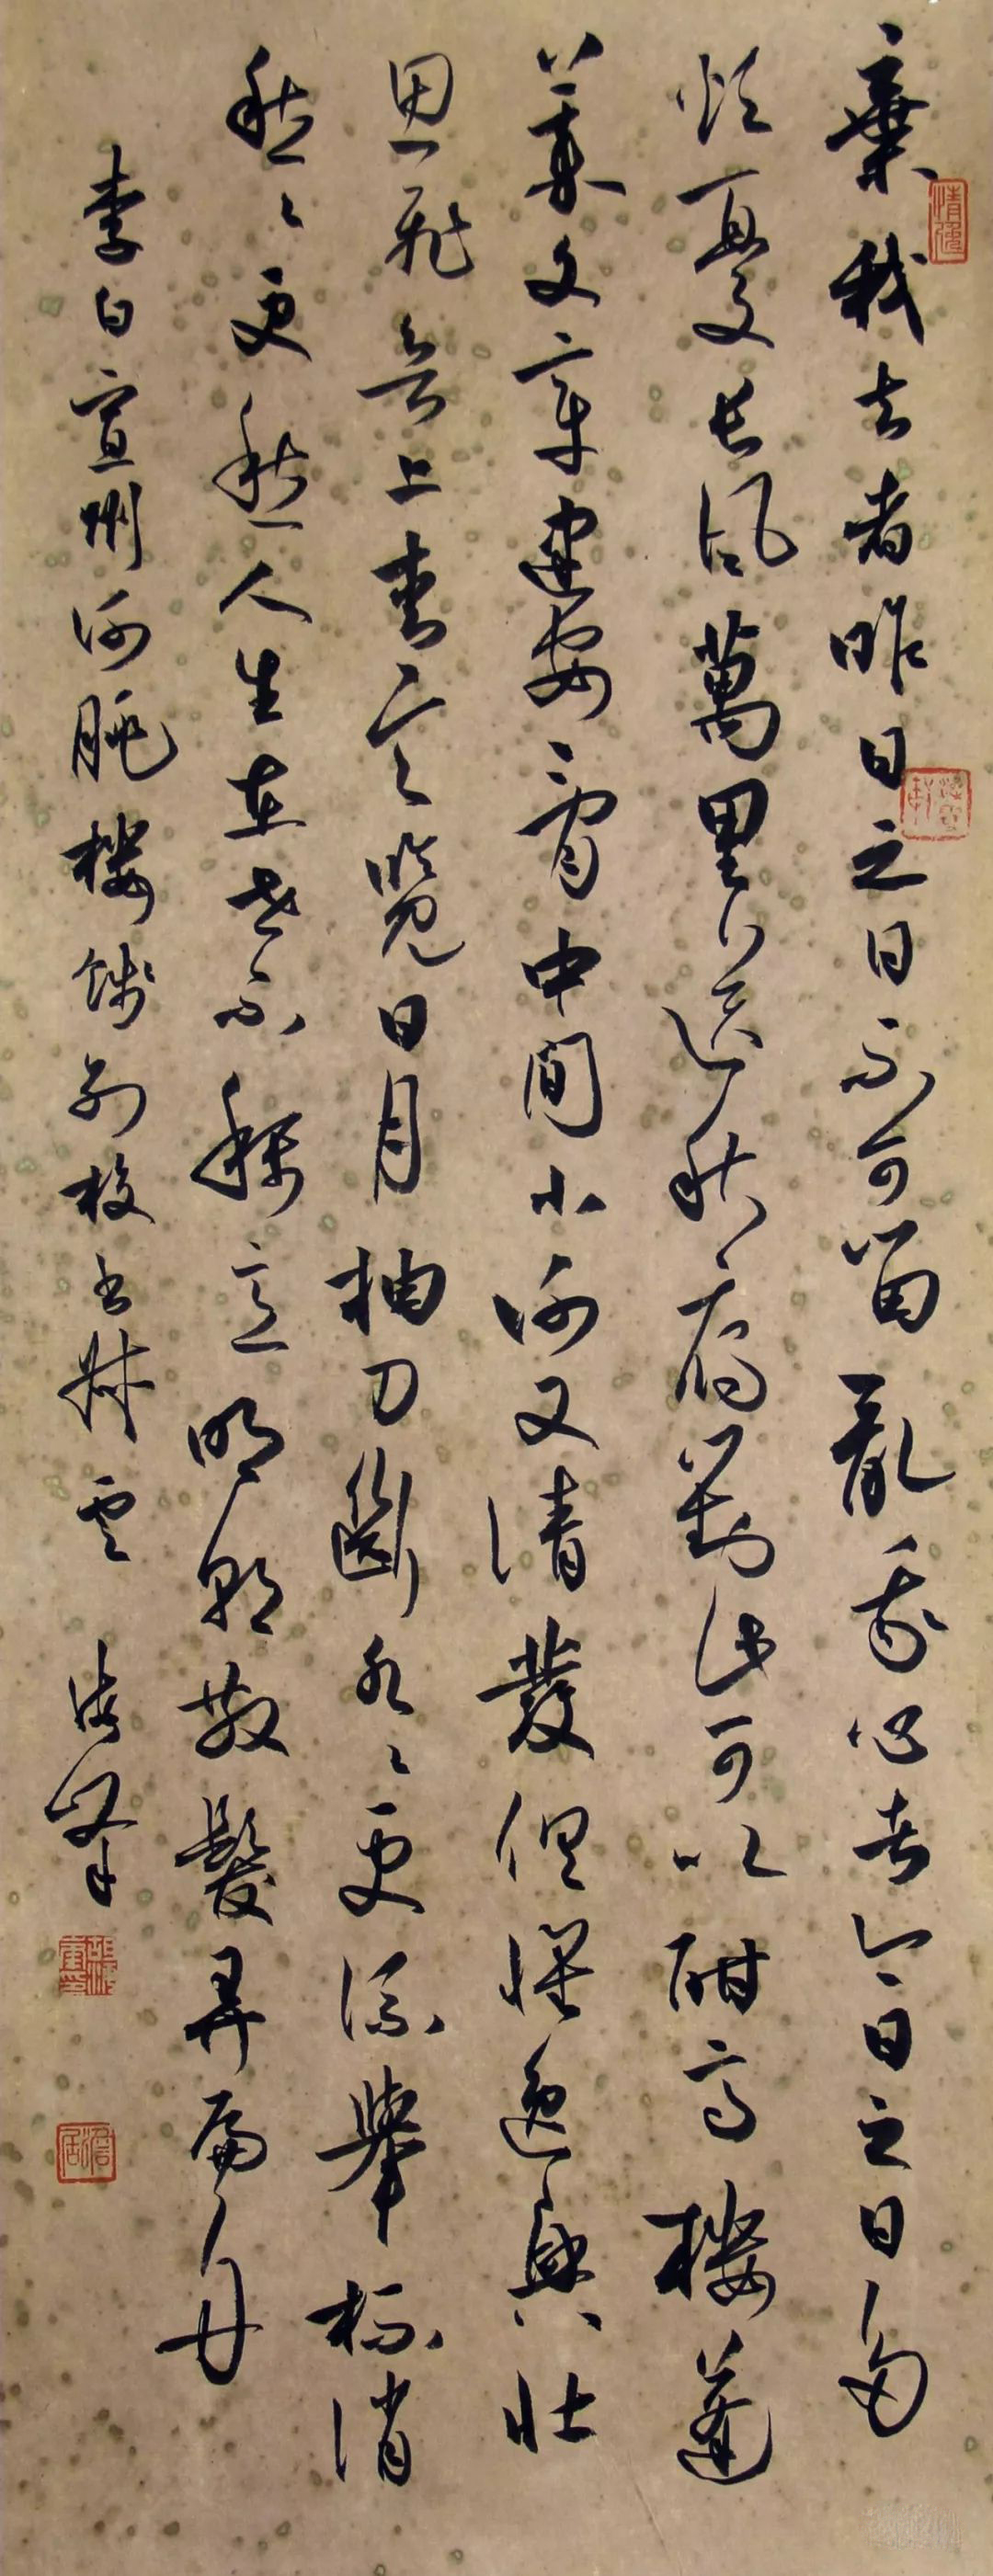 棄我去者昨日之日不可留亂我心者今日之日多
煩憂長風萬里送秋雁對此可以酣高樓蓬
萊文章建安骨中間小謝又清發俱懷逸興壯
思飛欲上青天覽日月抽刀斷水〻更流舉杯消
愁〻更愁人生在世不稱意明朝散髮弄扁舟
李白宣州謝朓樓餞別校書叔雲